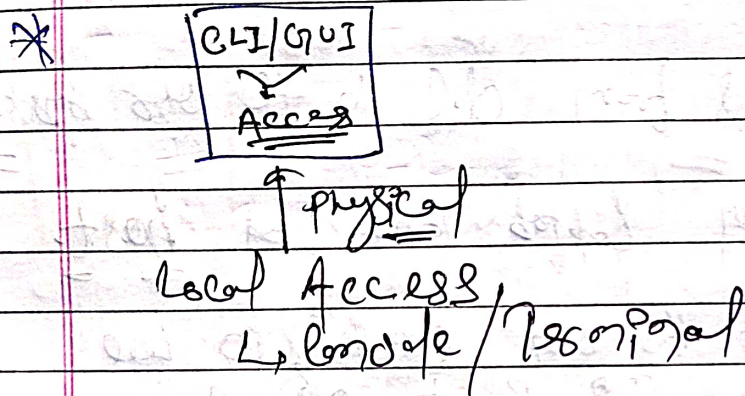 CLI/GUI
Acces
Physical
Local Access
↳ Console / Terminal